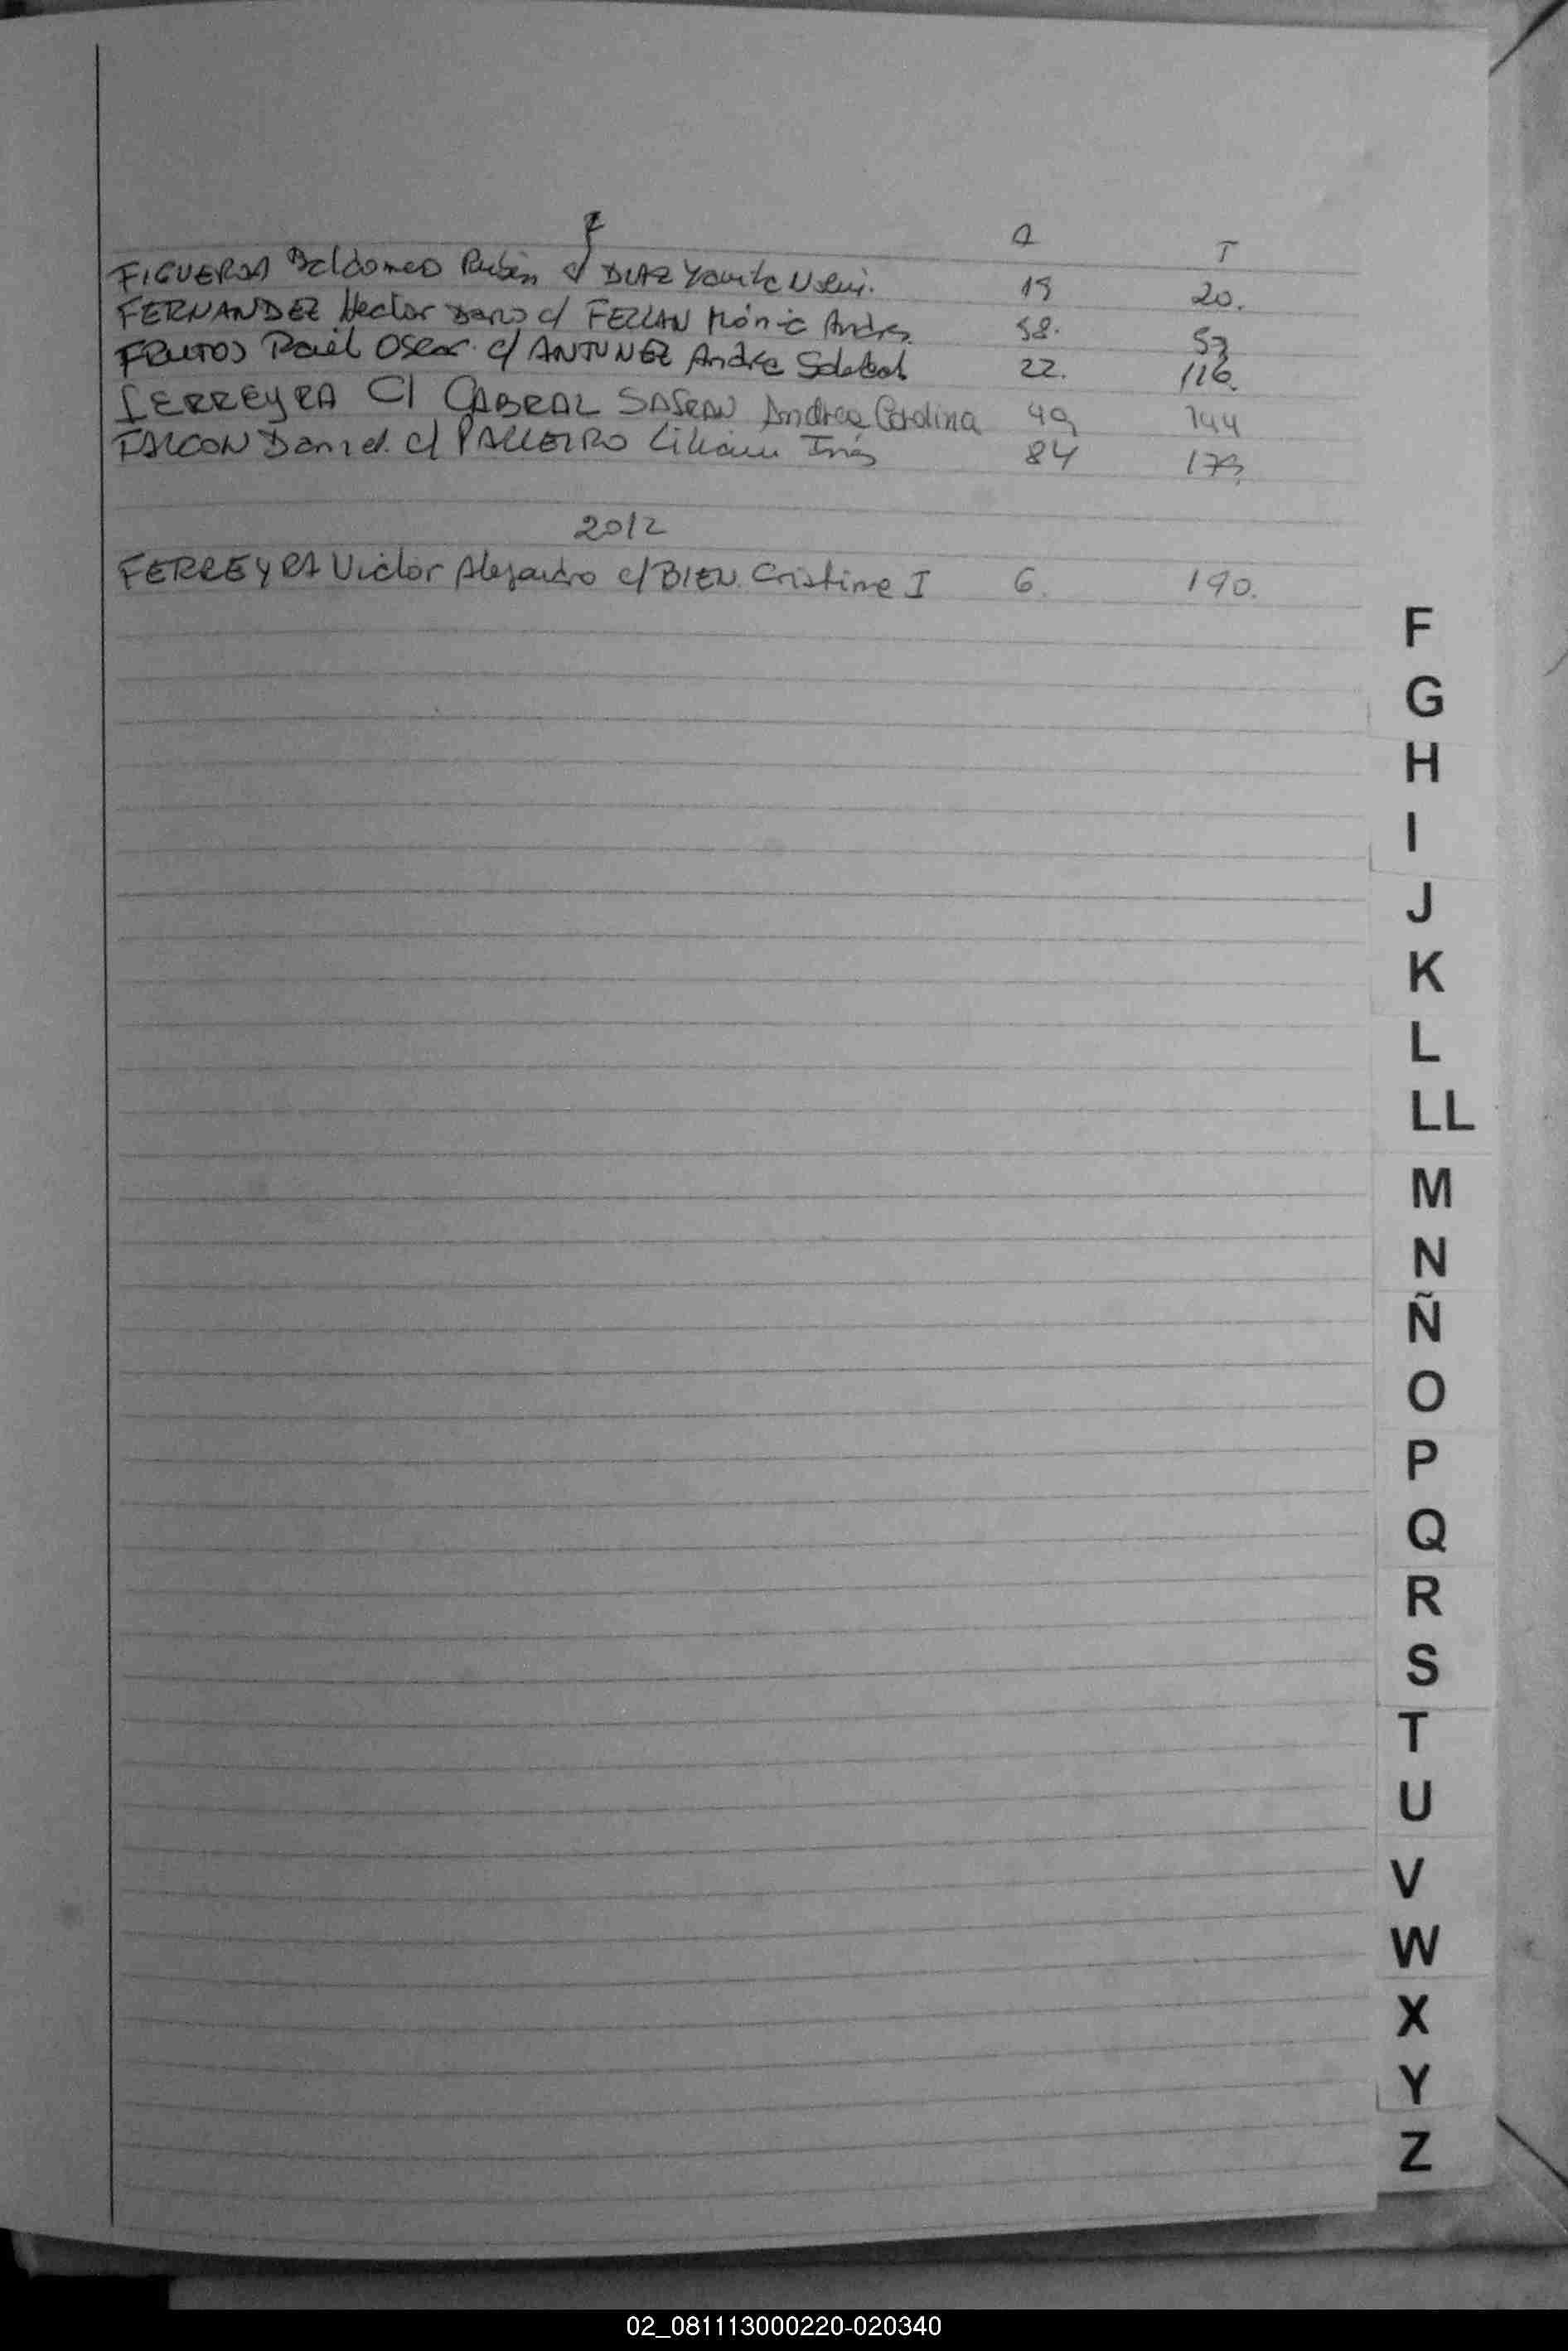 F A T
FIGUEROA Baldomero Rubén c/ DIAZ Noemi. 19 20.
FERNANDEZ Hector Dario c/ Mónica Andrea 58. 57
FRUTOS Raúl Oscar c/ ANTUNEZ Andrea Soledad 22. 116.
FERREYRA C/ CABRAL Andrea Carolina 49 144
FALCON Daniel c/ PALLEIRO Liliana Inés 84 179
2012
FERREYRA Victor Alejandro c/ BIEN Cristina I 6. 190.
F
G
H
I
J
K
L
LL
M
N
Ñ
O
P
Q
R
S
T
U
V
W
X
Y
Z
02_081113000220-020340